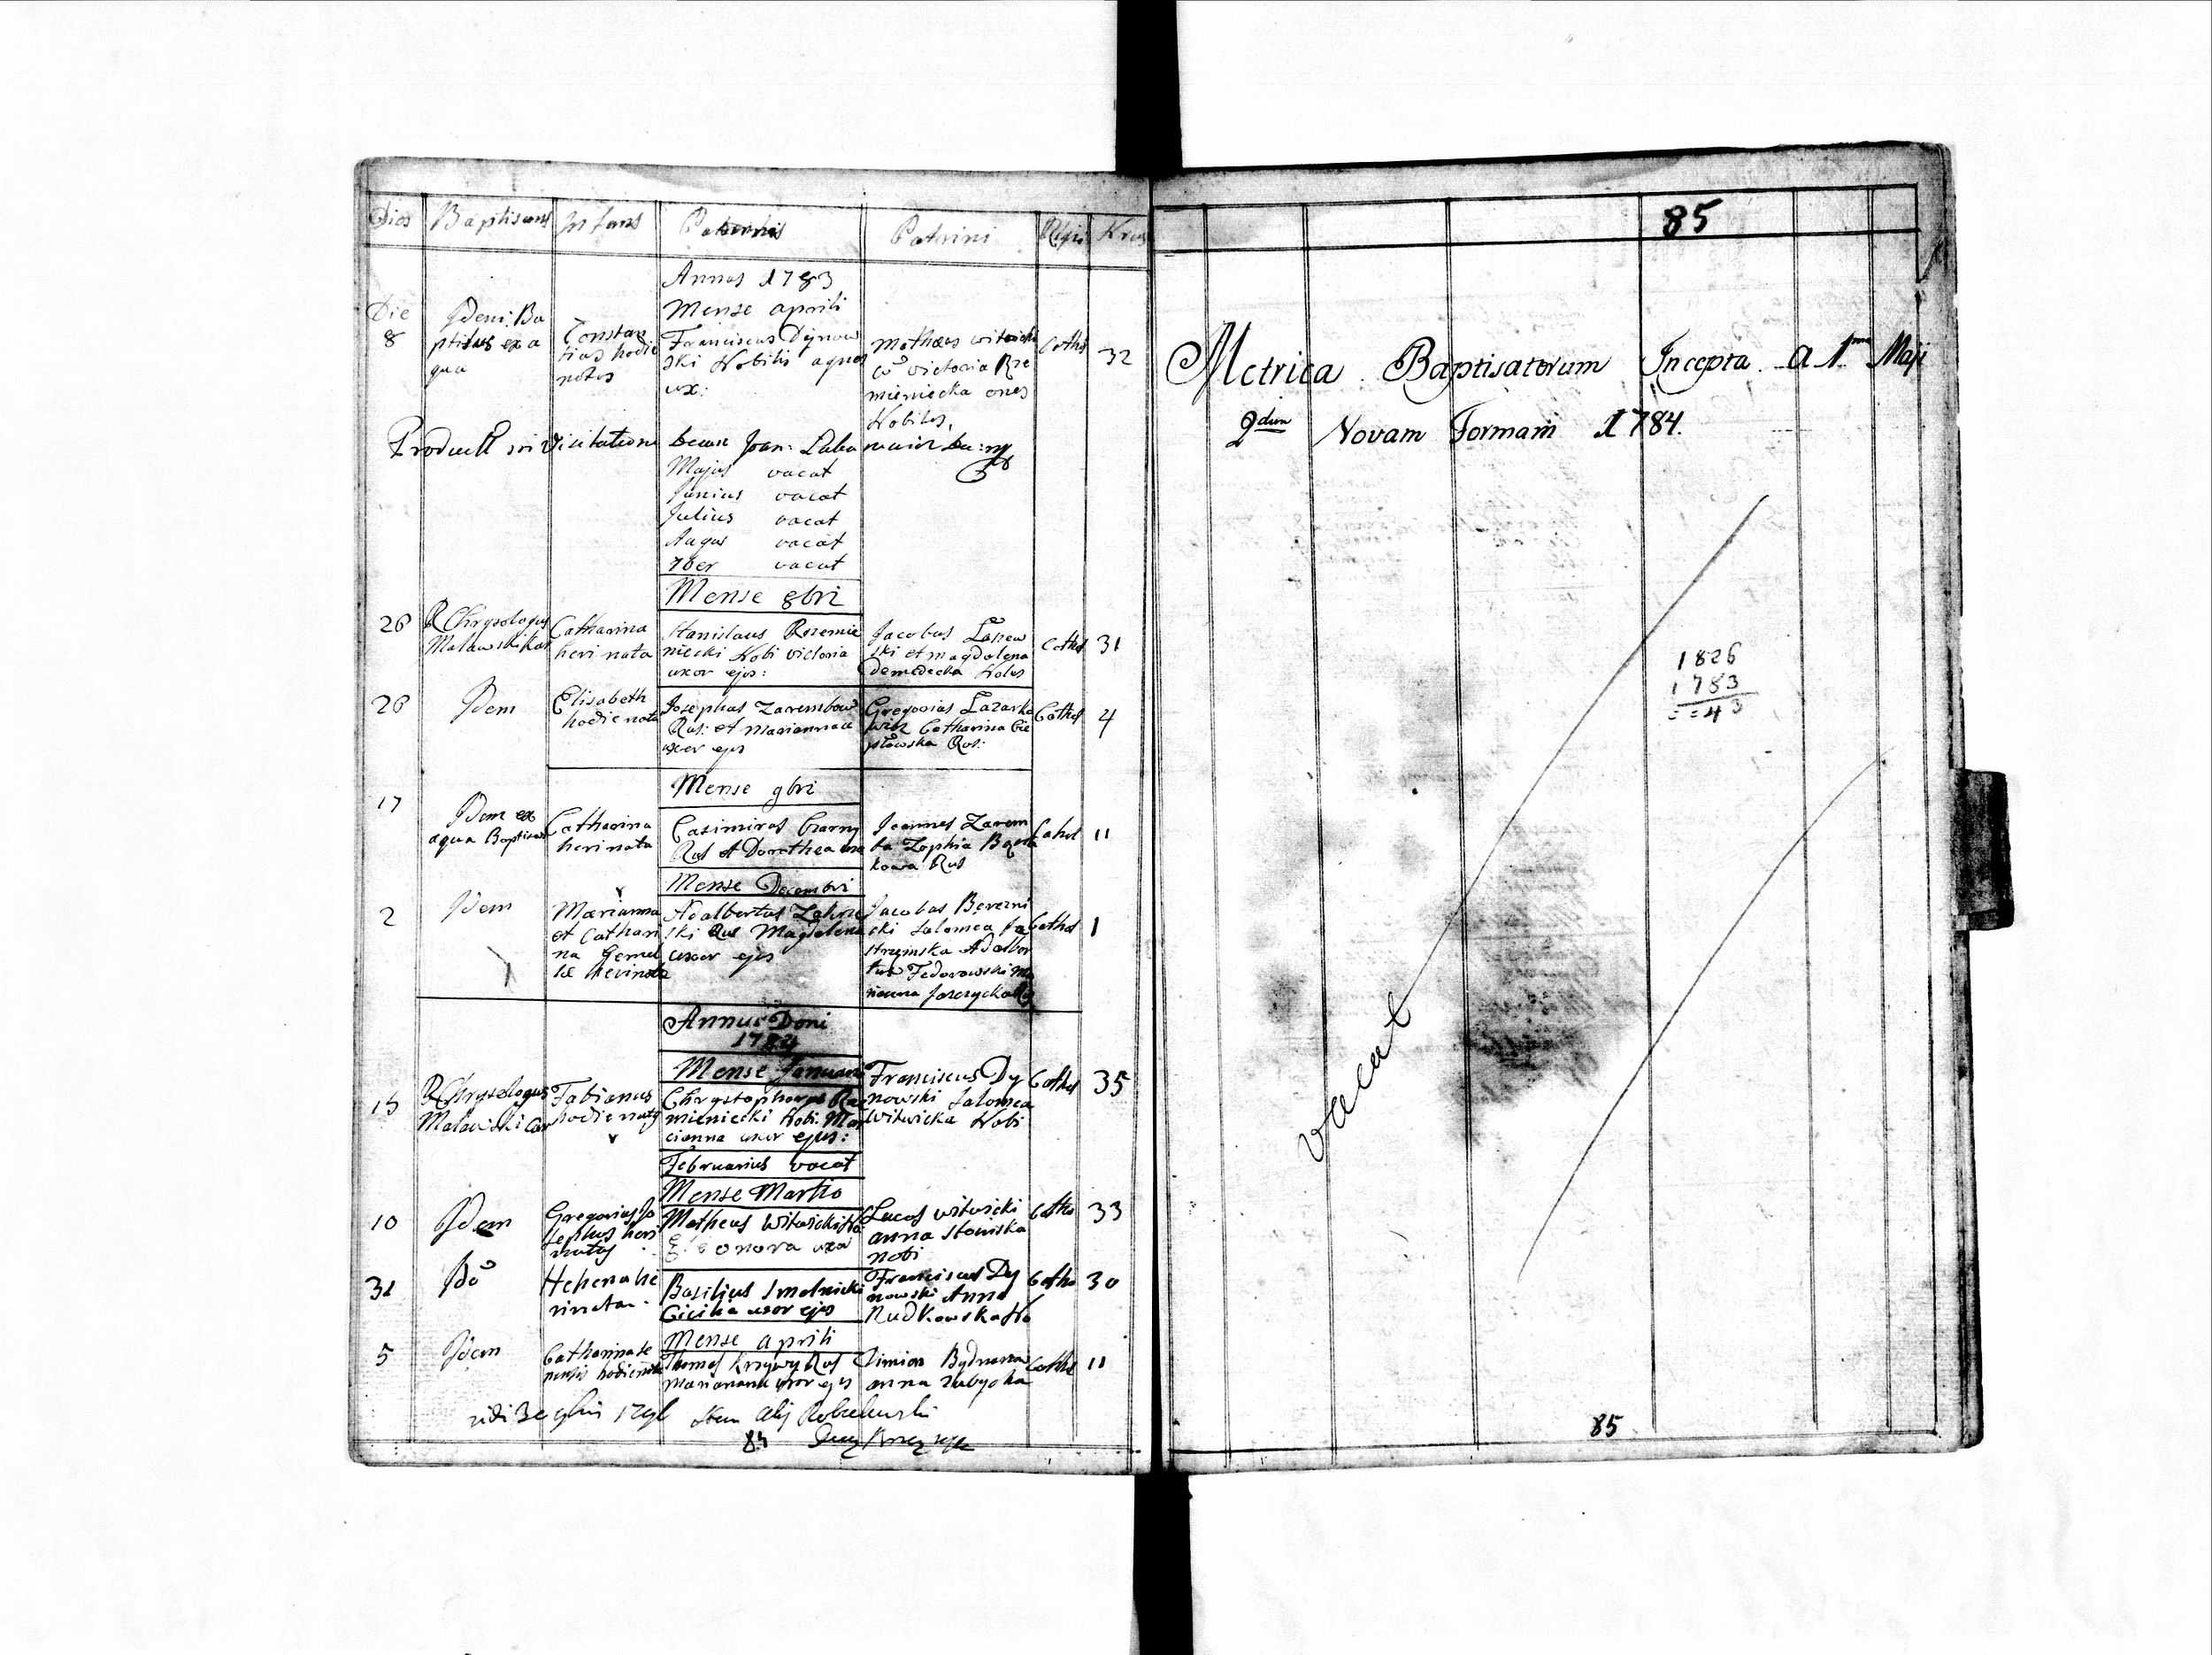 Dies Baptisans Infans Parentis Patrini Religio
Annus 1783
Mense aprili
Die 8 Idem Ba
ptisans ex a
qua
Constan
tius hodie
natus
Franciscus Dynow
ski Nobilis agnes
ux:
Mathæus witwicki
cũ victoria Rze
mieniecka ones
Nobiles,
Cathol 32
Product in Visitatione
Majus vacat
Junius vacat
Julius vacat
Augus vacat
7ber vacat
Mense 8bri
26 R Chrysologus
Malawski Kar
Catharina
heri nata
Stanislaus Rzemie
niecki Nobi victoria
uxor ejus:
Jacobus
ski et magdalena
Demedecka Nobs
Cathol 31
26 Idem
Elisabeth
hodie nata
Josephus Zarembow
Rus: et marianna
uxor ejus
Gregorius Lazarko
wicz Catharina Cie
płowska Rus:
Cathol 4
Mense 9bri
17 Idem ex
aqua Baptisans
Catharina
heri nata
Casimirus Czarny
Rus et Dorothea
Joannes Zarem
ba Zophia
kowa Rus
Cathol 11
Mense Decembri
2 Idem
Marianna
et Cathari
na Gemel
læ heri natæ
Adalbertus
ski Rus Magdalena
uxor ejus
Jacobus Berezni
cki Salomea Ja
strzemska Adalber
tus Fedorowski Ma
rianna
Cathol 1
Annus Doni
1784
Mense Januari
15 R Chrysologus
Malawski Car
Fabianus
hodie natus
Chrystophorus Rze
mieniecki Nobi. Mar
cianna uxor ejus:
Franciscus Dy
nowski Salomea
Witwicka Nobi
Cathol 35
Februarius vacat
Mense Martio
10 Idem
Gregorius Jo
sephus heri
natus
Matheus Witwicki No
Eleonora uxor
Lucas witwicki
anna Stoniska
nobi
Catho 33
31 Idẽ
Helena he
ri nata.
Basilius Smolnicki
Cicilia uxor ejus
Franciscus Dy
nowski Anna
Rudkowska No
Catho 30
Mense aprili
5 Idem
Thomas Krzywy Rus
Marianna uxor ejus
Simion
anna
Cathol 11
84
85
Metrica Baptisatorum Incepta a 1ma Maji
2dum Novam Formam 1784.
1826
1783
==43
vacat
85